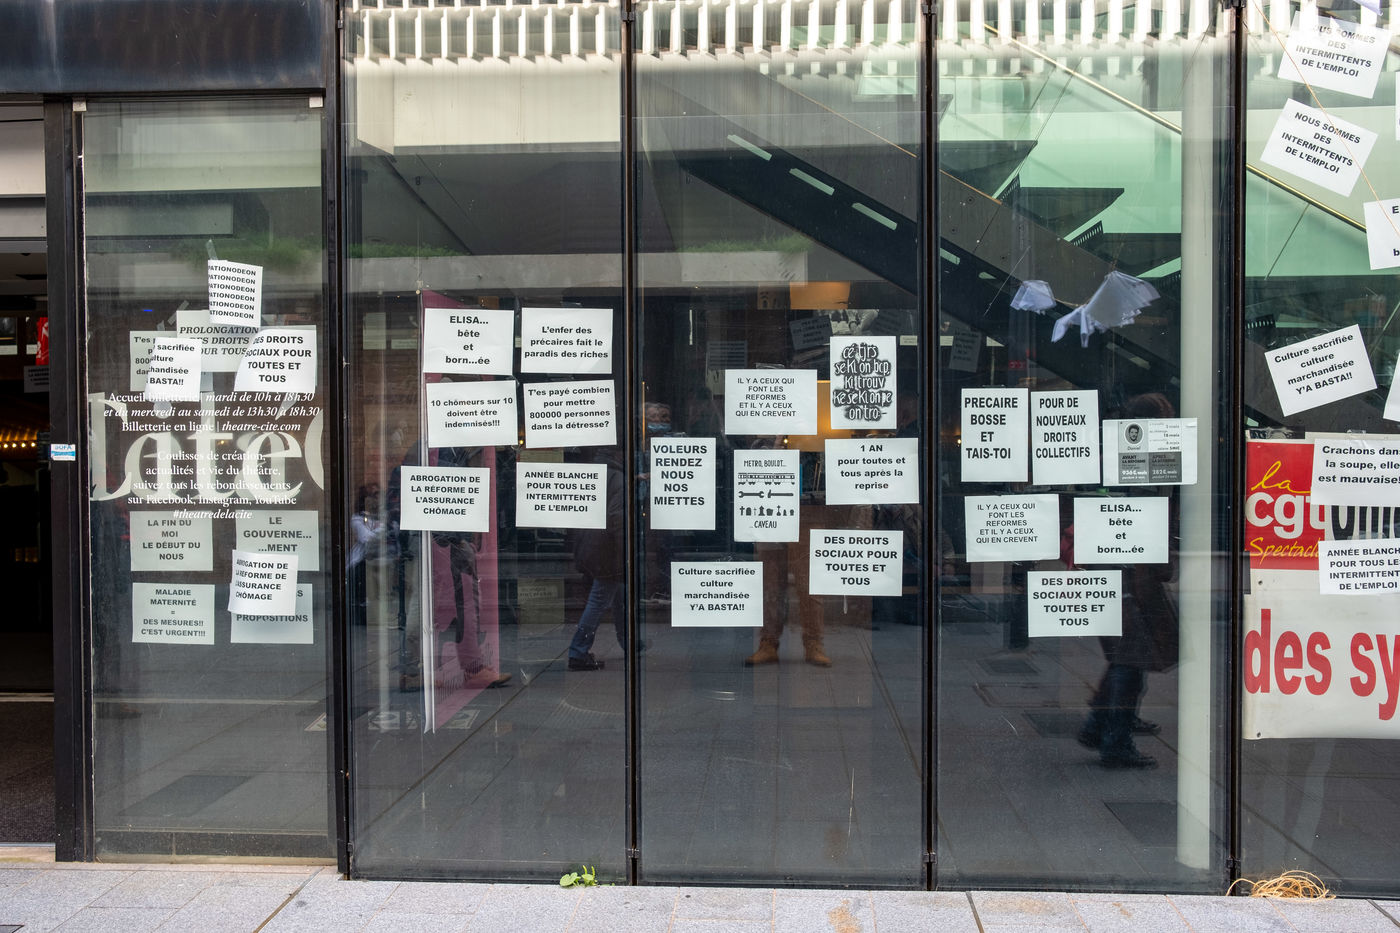 PATIONODEON
PATIONODEON
PATIONODEON
PATIONODEON
PATIONODEON
PATIONODEON
PROLONGATION
DES DROITS
POUR TOUS
sacrifiée
culture
marchandisée
BASTA!!
DES DROITS
SOCIAUX POUR
TOUTES ET
TOUS
Accueil billetterie| mardi de 10h à 18h30
et du mercredi au samedi de 13h30 à 18h30
Billetterie en ligne | theatre-cite.com
Coulisses de création,
actualités et vie du théâtre,
suivez tous les rebondissements
sur Facebook, Instagram, YouTube
#theatredelacite
LA FIN DU
MOI
LE DÉBUT DU
NOUS
LE
GOUVERNE...
...MENT
ABROGATION DE
LA RÉFORME DE
L'ASSURANCE
CHÔMAGE
MALADIE
MATERNITÉ
=
DES MESURES!!
C'EST URGENT!!!
PROPOSITIONS
ELISA...
bête
et
born...ée
L'enfer des
précaires fait le
paradis des riches
10 chômeurs sur 10
doivent être
indemnisés!!!
T'es payé combien
pour mettre
800000 personnes
dans la détresse?
ABROGATION DE
LA RÉFORME DE
L'ASSURANCE
CHÔMAGE
ANNÉE BLANCHE
POUR TOUS LES
INTERMITTENTS
DE L'EMPLOI
IL Y A CEUX QUI
FONT LES
REFORMES
ET IL Y A CEUX
QUI EN CREVENT
ce kjrs
se ki on bcp
ki trouv
ke se ki on pe
on tro
VOLEURS
RENDEZ
NOUS
NOS
MIETTES
METRO, BOULOT...
... CAVEAU
1 AN
pour toutes et
tous après la
reprise
DES DROITS
SOCIAUX POUR
TOUTES ET
TOUS
Culture sacrifiée
culture
marchandisée
Y'A BASTA!!
PRECAIRE
BOSSE
ET
TAIS-TOI
POUR DE
NOUVEAUX
DROITS
COLLECTIFS
Daniel
AVANT
LA RÉFORME
936€/mois
APRÈS
LA RÉFORME
282€/mois
IL Y A CEUX QUI
FONT LES
REFORMES
ET IL Y A CEUX
QUI EN CREVENT
ELISA...
bête
et
born...ée
DES DROITS
SOCIAUX POUR
TOUTES ET
TOUS
NOUS SOMMES
DES
INTERMITTENTS
DE L'EMPLOI
NOUS SOMMES
DES
INTERMITTENTS
DE L'EMPLOI
Culture sacrifiée
culture
marchandisée
Y'A BASTA!!
la
cgt
Spectacle
Crachons dans
la soupe, elle
est mauvaise!
ANNÉE BLANCHE
POUR TOUS LES
INTERMITTENTS
DE L'EMPLOI
des sy